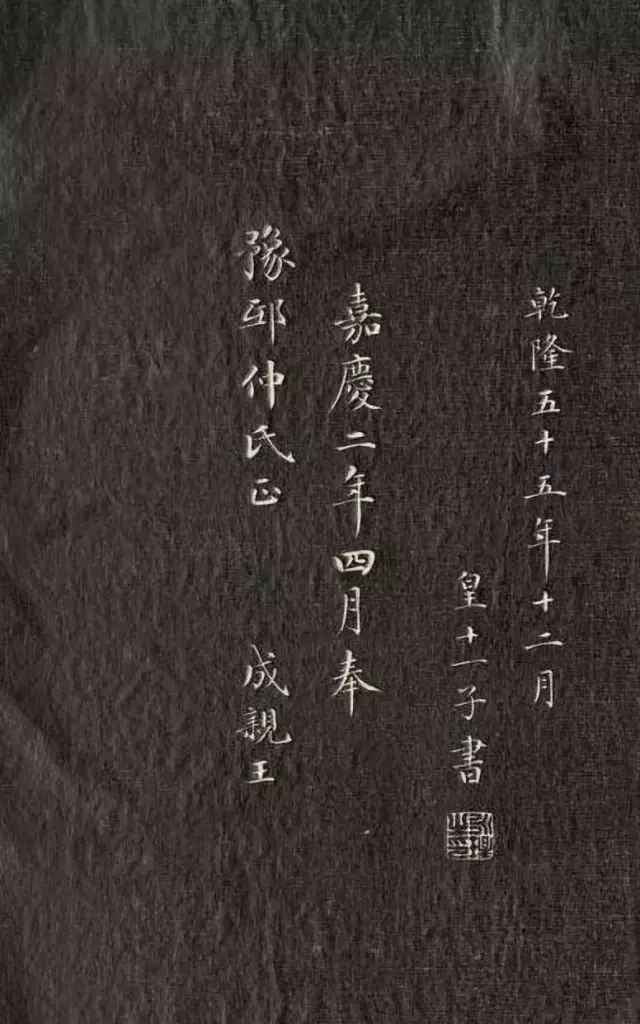 乾隆五十五年十二月
皇十一子書
嘉慶二年四月奉
豫邨仲氏正
成親王